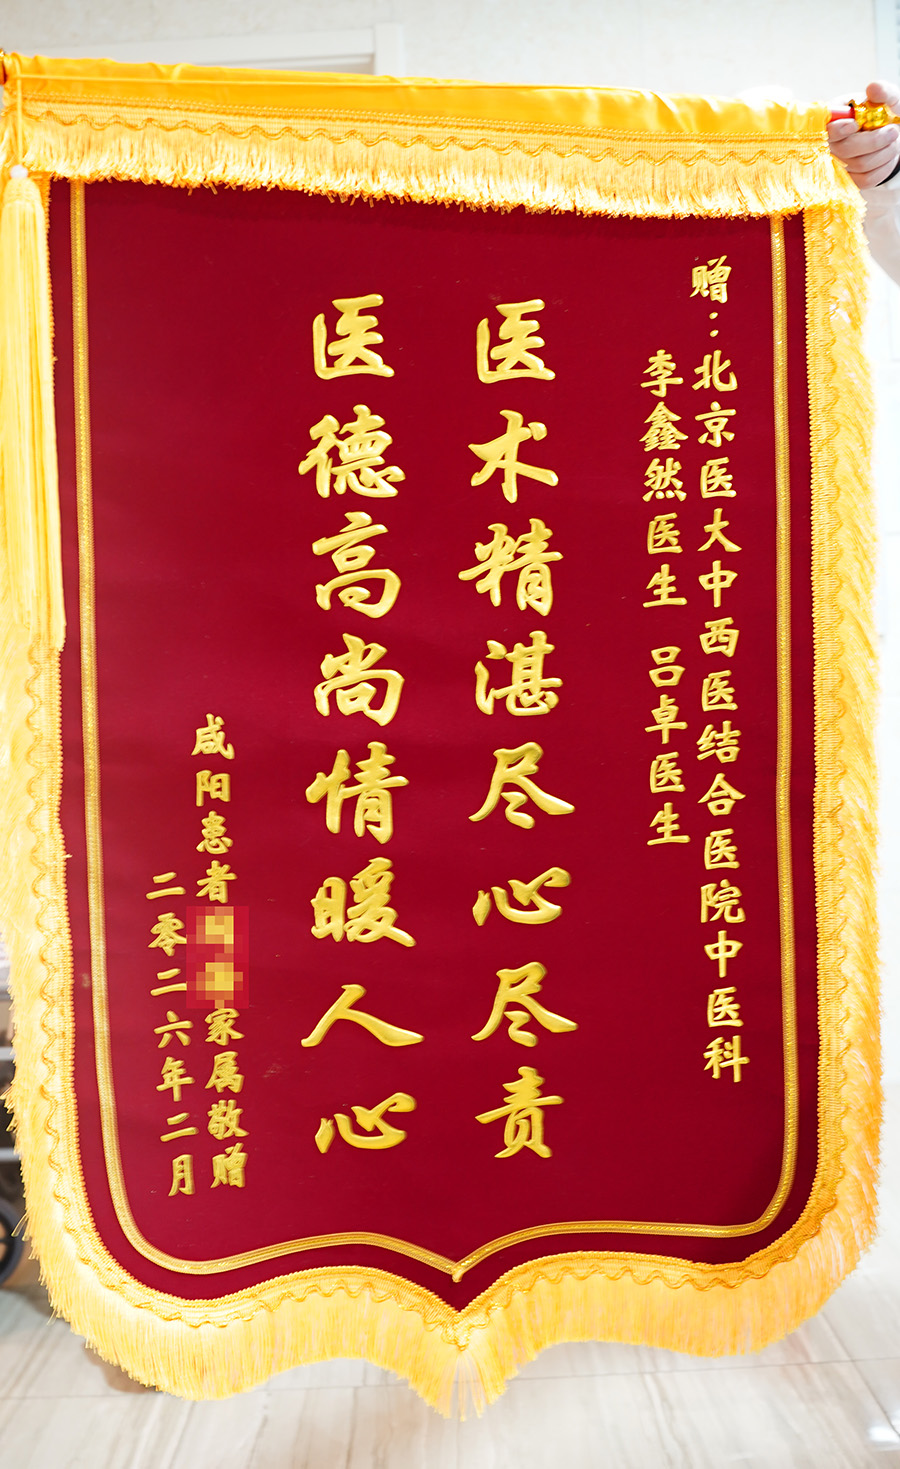 赠：北京医大中西医结合医院中医科
李鑫然医生 吕卓医生
医术精湛尽心尽责
医德高尚情暖人心
咸阳患者家属敬赠
二零二六年二月